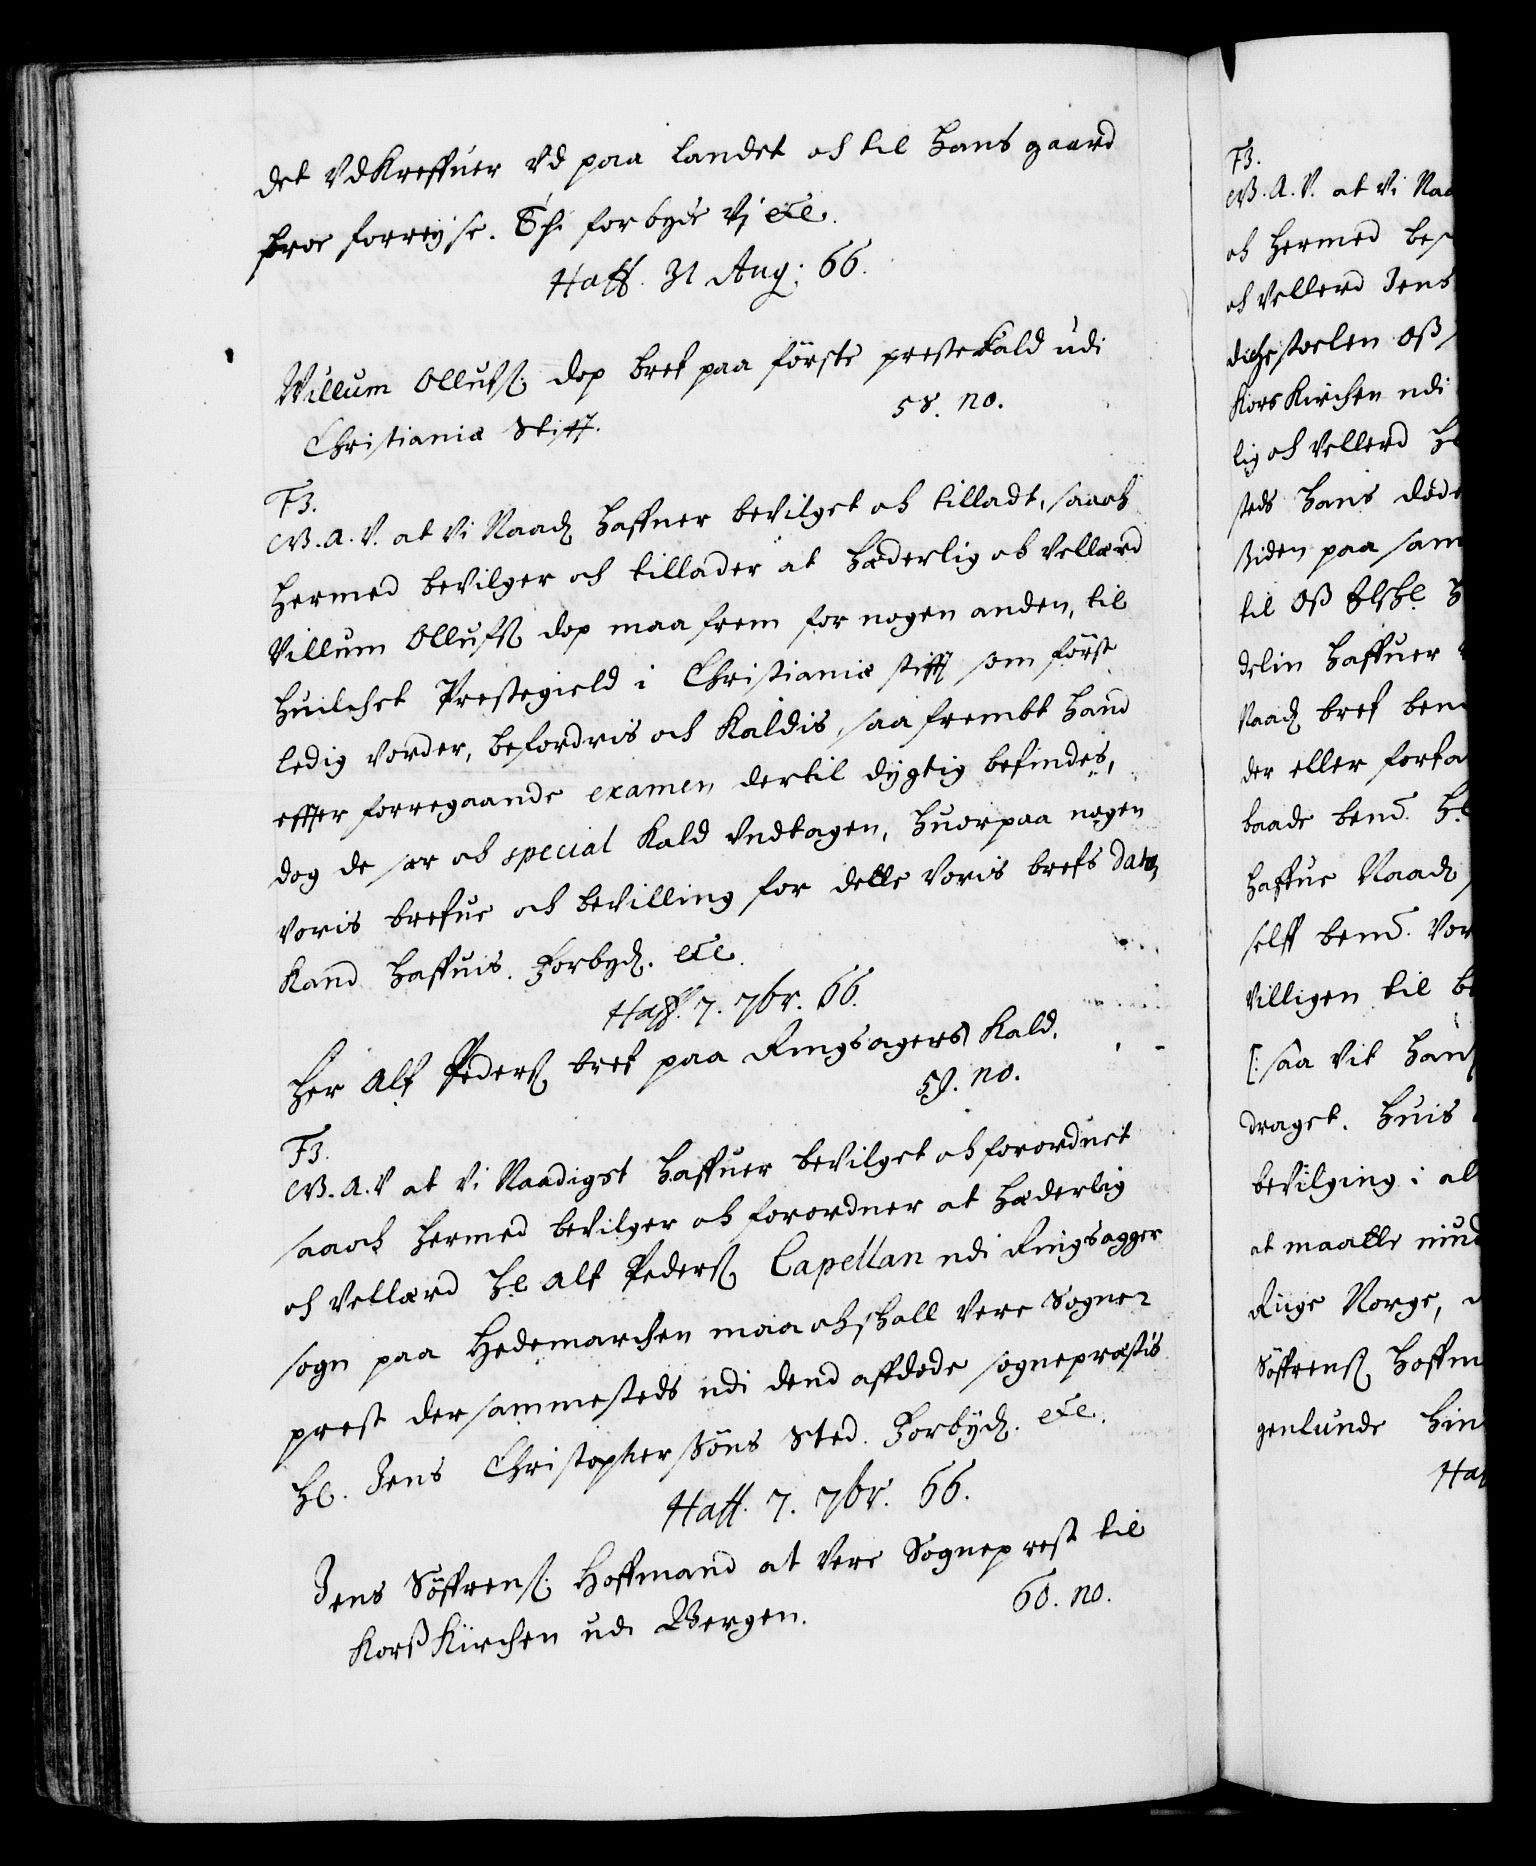 det Vdkreffuer vd paa landet och til hans gaard
hos forreyse. Thi forbyde Vi etc.
Haff. 31 Aug: 66.
Willum Ollufs. dop bref paa første prestekald udi
Christianiæ Stift. 58. no.
F3.
G.A.V. at Vi Naadg haffuer bevilget och tilladt, saa och
hermed bevilger och tillader at hæderlig och Vellærd
Villum Ollufs dop maa frem for nogen anden, til
huilchet Prestegield i Christianiæ stifft som først
ledig vorder, befordris och kaldis, saafrembt hand
effter forregaaende examen dertil dygtig befindes,
dog de sær och special kald vndtagen, huorpaa nogen
voris brefue och bevilling for dette voris brefs Dato,
kand haffuis. Forbyd. etc.
Haff. 7. 7br. 66.
Her Alf Peders bref paa Ringsagers kald.
59. no.
F3.
G.A.V at Vi Naadigst haffuer bevilget och forordnet
saa och hermed bevilger och forordner at hæderlig
och Vellærd Hr Alf Peders Capellan udi Ringsagger
sogn paa Hedemarchen maa och schall Vere Sogne-
prest dersammesteds udi dend affdøde sogneprestis
Hr. Jens Christophersøns Sted. Forbyd. etc.
Haff. 7. 7br. 66.
Jens Søffrens. Hoffmand at Vere Sogneprest til
Korsskirchen udi Bergen. 60. no.
F3.
G.A.V. at Vi Naa
och hermed bes
och Vellerd Jens
dichestoelen oss
Korskirchen udi
lig och Vellerd H
steds hans døde
siden paa sam
til oss Elskl. H
delin haffuer
Naadg bref ben
der eller forfa
baade bend. Hr
haffue Naadg
self bend. Vor
villigen til be
[: saa vit hans
draget. Huis
bevilging i al
at maatte niud
Riige Norge,
Søffrens hoffm
genlunde hin
Haf